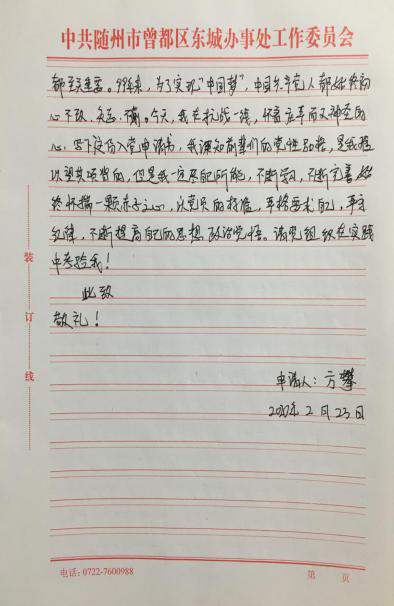 中共随州市曾都区东城办事处工作委员会
都至关重要。99年来，为了实现“中国梦”，中国共产党人都始终初
心不改、矢志不渝。今天，我在抗战一线，怀着庄重而又神圣的
心，写下这份入党申请书，我深知前辈们的党性品格，是我难
以望其项背的，但是我一定尽己所能，不断学习，不断完善，始
终怀揣一颗赤子之心，以党员的标准，严格要求自己，严守
纪律，不断提高自己的思想政治觉悟。请党组织在实践
中考验我！
此致
敬礼！
申请人：方攀
2020年2月23日
装
订
线
电话：0722-7600988
第 页